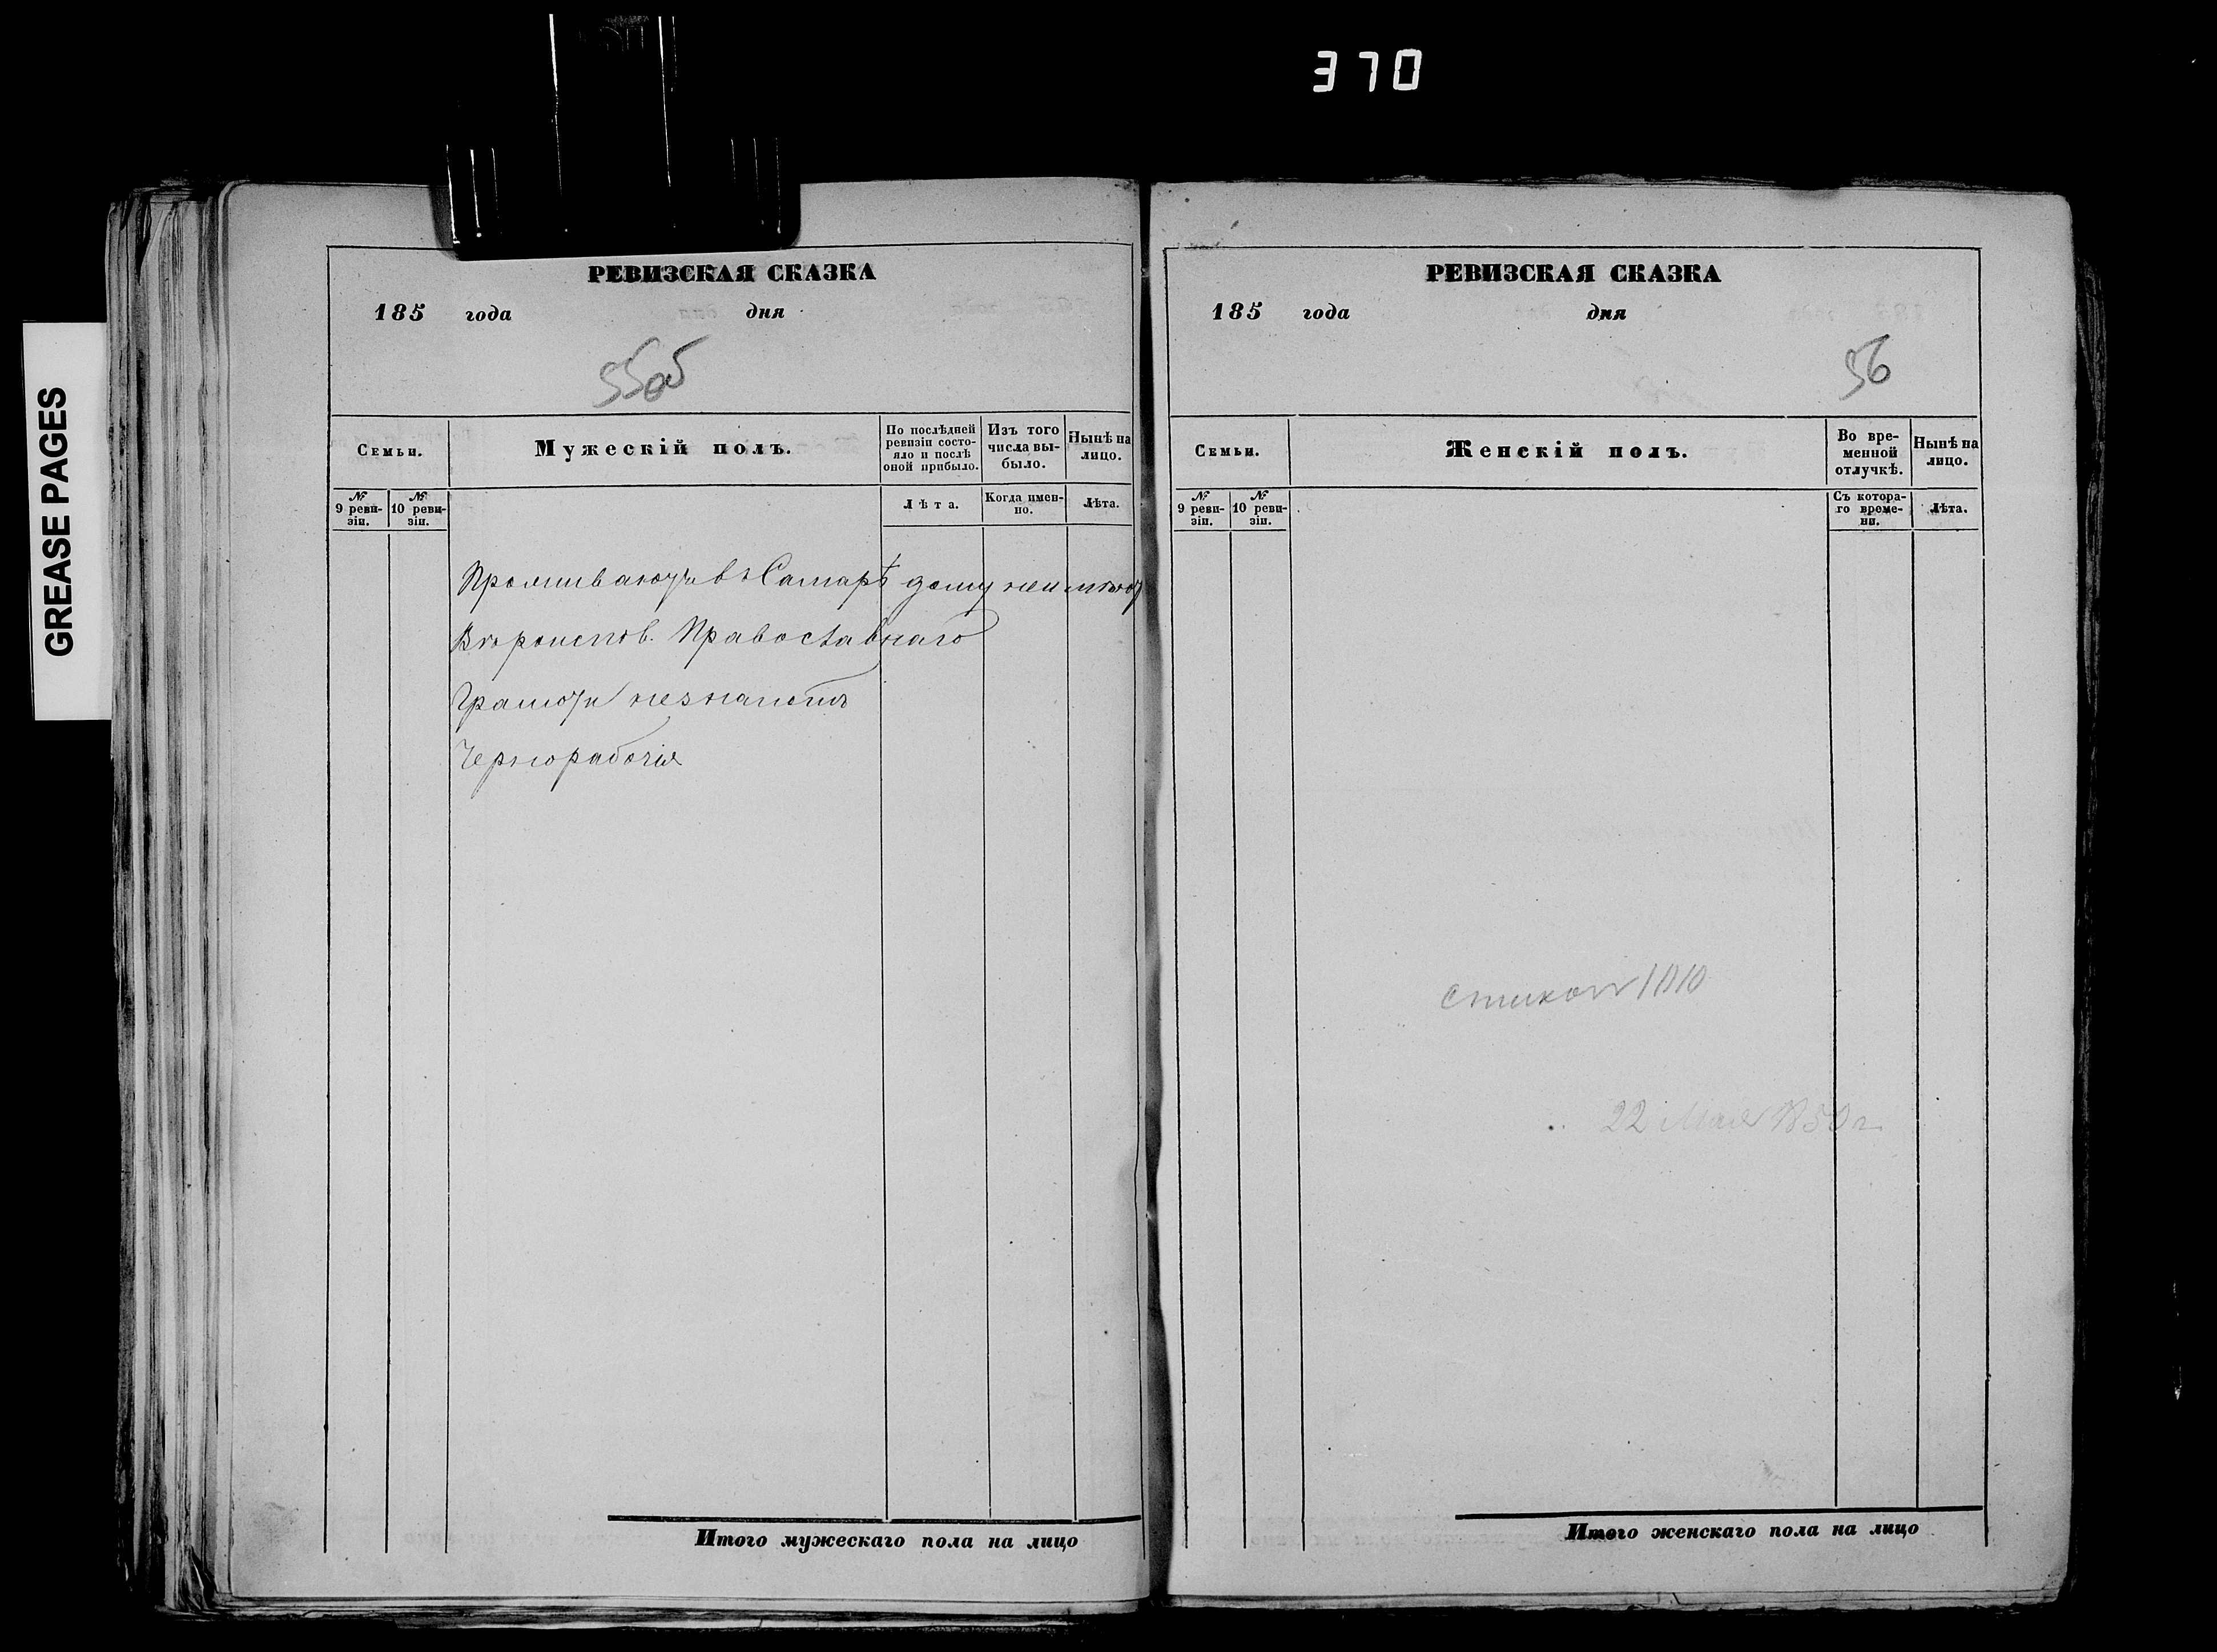 370
GREASE PAGES
РЕВИЗСКАЯ СКАЗКА
185 года дня
55об
Семьи.
Мужескій полъ.
По послѣдней ревизіи состояло и послѣ оной прибыло.
Изъ того числа выбыло.
Нынѣ на лицо.
№ 9 ревизіи.
№ 10 ревизіи.
Лѣта.
Когда именно.
Лѣта.
Проживаютъ въ Самарѣ дому неимѣют
Вѣроиспов. Православнаго
Грамоты незнаетъ
Чернорабочія
Итого мужескаго пола на лицо
РЕВИЗСКАЯ СКАЗКА
185 года дня
56
Семьи.
Женскій полъ.
Во временной отлучкѣ.
Нынѣ на лицо.
№ 9 ревизіи.
№ 10 ревизіи.
Съ котораго времени.
Лѣта.
22 Мая 1850 г.
Итого женскаго пола на лицо